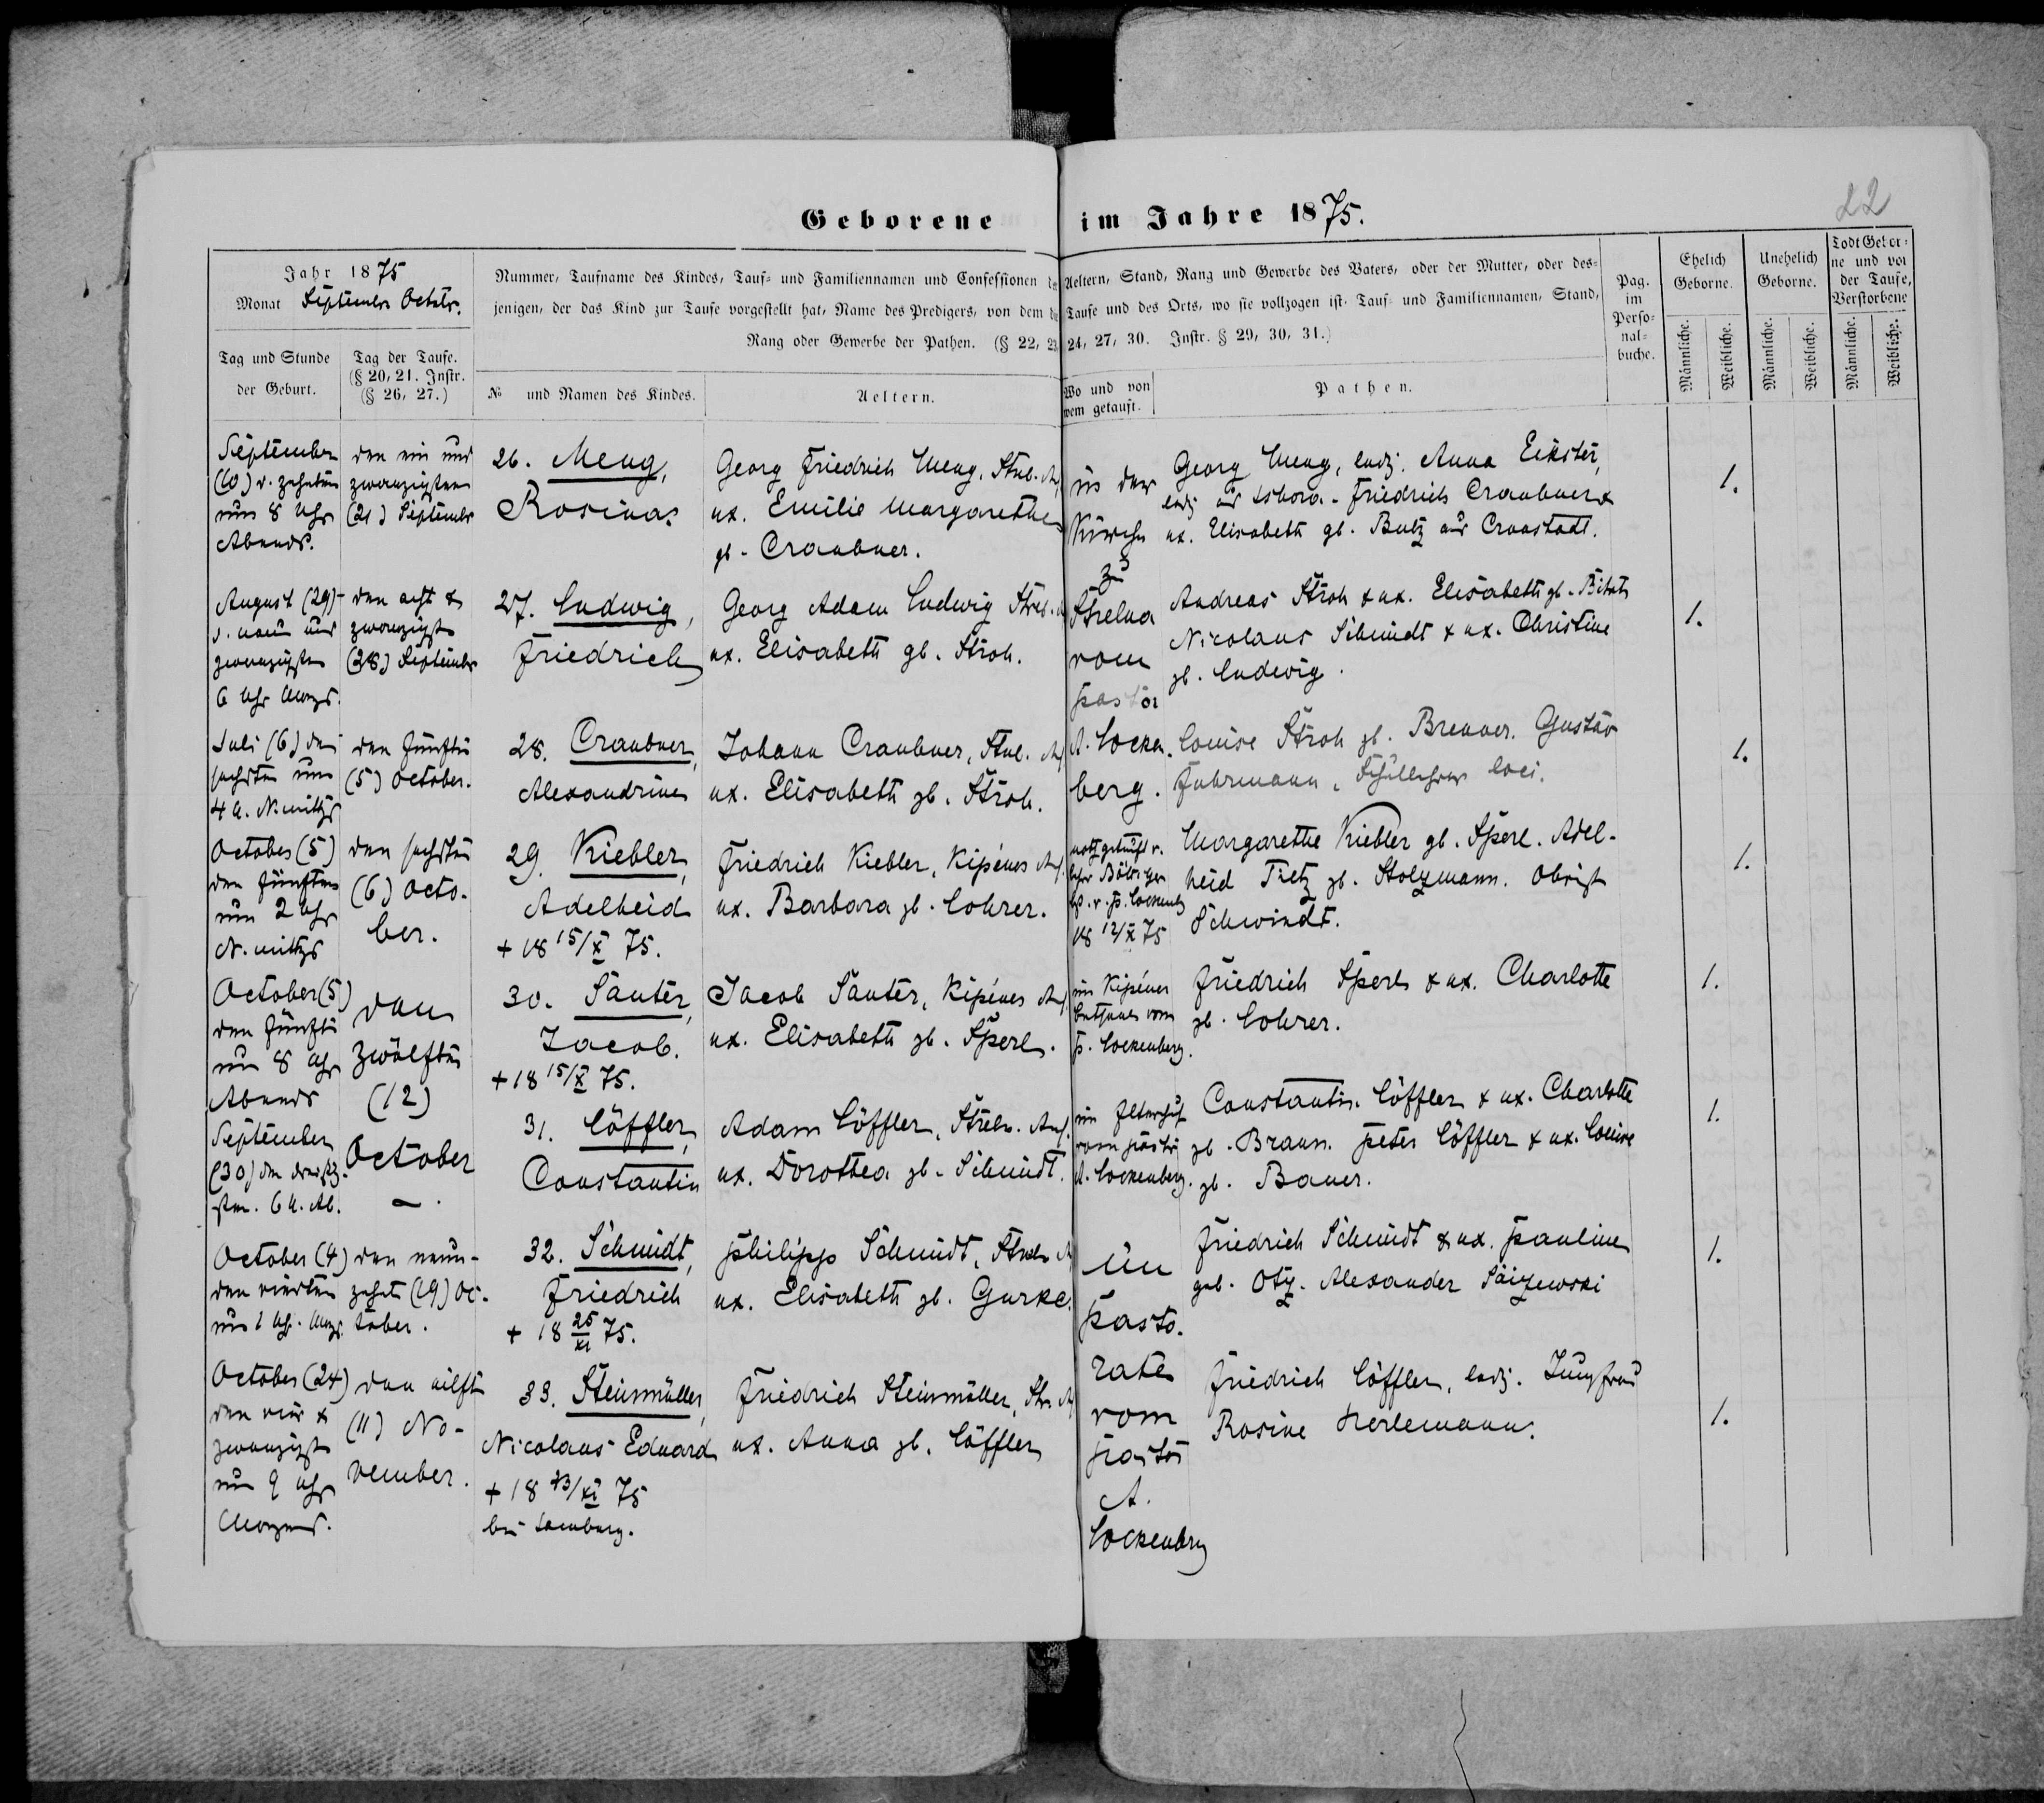 Geborene im Jahre 1875.
22
Jahr 1875
Monat September October.
Tag und Stunde der Geburt.
Tag der Taufe. (§ 20, 21. Instr. (§ 26, 27.)
Nummer, Taufname des Kindes, Tauf- und Familiennamen und Confessionen der Aeltern, Stand, Rang und Gewerbe des Vaters, oder der Mutter, oder des-
jenigen, der das Kind zur Taufe vorgestellt hat, Name des Predigers, von dem die Taufe und des Orts, wo sie vollzogen ist. Tauf- und Familiennamen, Stand,
Rang oder Gewerbe der Pathen. (§ 22, 23, 24, 27, 30. Instr. § 29, 30, 31.)
№ und Namen des Kindes.
Aeltern.
Wo und von wem getauft.
Pathen.
Pag. im Perso-nal-buche.
Ehelich Geborne.
Unehelich Geborne.
Todt Gebor-ne und vor der Taufe, Verstorbene
Männliche.
Weibliche.
Männliche.
Weibliche.
Männliche.
Weibliche.
September
(10) d. zehnten
um 8 Uhr
Abends.
den ein und
zwanzigsten
(21) September
26. Meng,
Rosina.
Georg Friedrich Meng, Strel.
ux. Emilie Margarethe
gb. Craubner.
in der
Kirche
zu
Strelna
vom
Pastor
A. Locken-
berg.
Georg Meng, ledig. Anna Eikster,
ledig aus Ishora. Friedrich Craubner &
ux. Elisabeth gb. Butz aus Cronstadt.
1.
August (29)
d. neun und
zwanzigsten
6 Uhr Morgs.
den acht &
zwanzigst
(28) September
27. Ludwig,
Friedrich
Georg Adam Ludwig Strel.
ux. Elisabeth gb. Stroh.
Andreas Stroh & ux. Elisabeth gb.
Nicolaus Schmidt & ux. Christine
gb. Ludwig.
1.
Juli (6) den
sechsten um
4 U. N.mittgs
den fünften
(5) October.
28. Craubner,
Alexandrine
Johann Craubner, Strel.
ux. Elisabeth gb. Stroh.
Louise Stroh gb. Brenner. Gustav
Fuhrmann, Schullehrer loci.
1.
October (5)
den fünften
um 2 Uhr
N. mittgs
den sechsten
(6) Octo-
ber.
29. Kiebler,
Adelheid
+ 18 15/X 75.
Friedrich Kiebler, Kipénes Ans.
ux. Barbara gb. Lohrer.
notgetauft v.
18 12/X 75
Margarethe Kiebler gb. Sperl. Adel-
heid Tietz gb. Stolzmann. Obrist
Schwindt.
1.
October (5)
den fünften
um 8 Uhr
Abends
den
zwölften
(12)
October
30. Sauter,
Jacob.
+ 18 15/X 75.
Jacob Sauter, Kipénes Ans.
ux. Elisabeth gb. Sperl.
im Kipéner
Bethause vom
P. Lockenberg.
Friedrich Sperl & ux. Charlotte
gb. Lohrer.
1.
September
(30) den dreißig-
sten. 6 U. Ab.
31. Löffler,
Constantin
Adam Löffler, Streln. Ans.
ux. Dorothea gb. Schmidt.
vom Pastor
A. Lockenberg.
Constantin Löffler & ux. Charlotte
gb. Braun. Peter Löffler & ux. Louise
gb. Bauer.
1.
October (4)
den vierten
um 1 Uhr. Morgs.
den neun-
zehnt (19) Oc-
tober.
32. Schmidt,
Friedrich
+ 18 25/XI 75.
Philipp Schmidt, Streln
ux. Elisabeth gb. Gurke.
im
Pasto-
rate
vom
Pastor
A.
Lockenberg
Friedrich Schmidt & ux. Pauline
geb. Otz. Alexander Saizewski
1.
October (24)
den vier &
zwanzigst
um 9 Uhr
Morgens.
den eilften
(11) No-
vember.
33. Steinmüller,
Nicolaus Eduard
+ 18 23/XI 75
Friedrich Steinmüller, Str.
ux. Anna gb. Löffler
Friedrich Löffler, ledig. Jungfrau
Rosine Herlemann.
1.